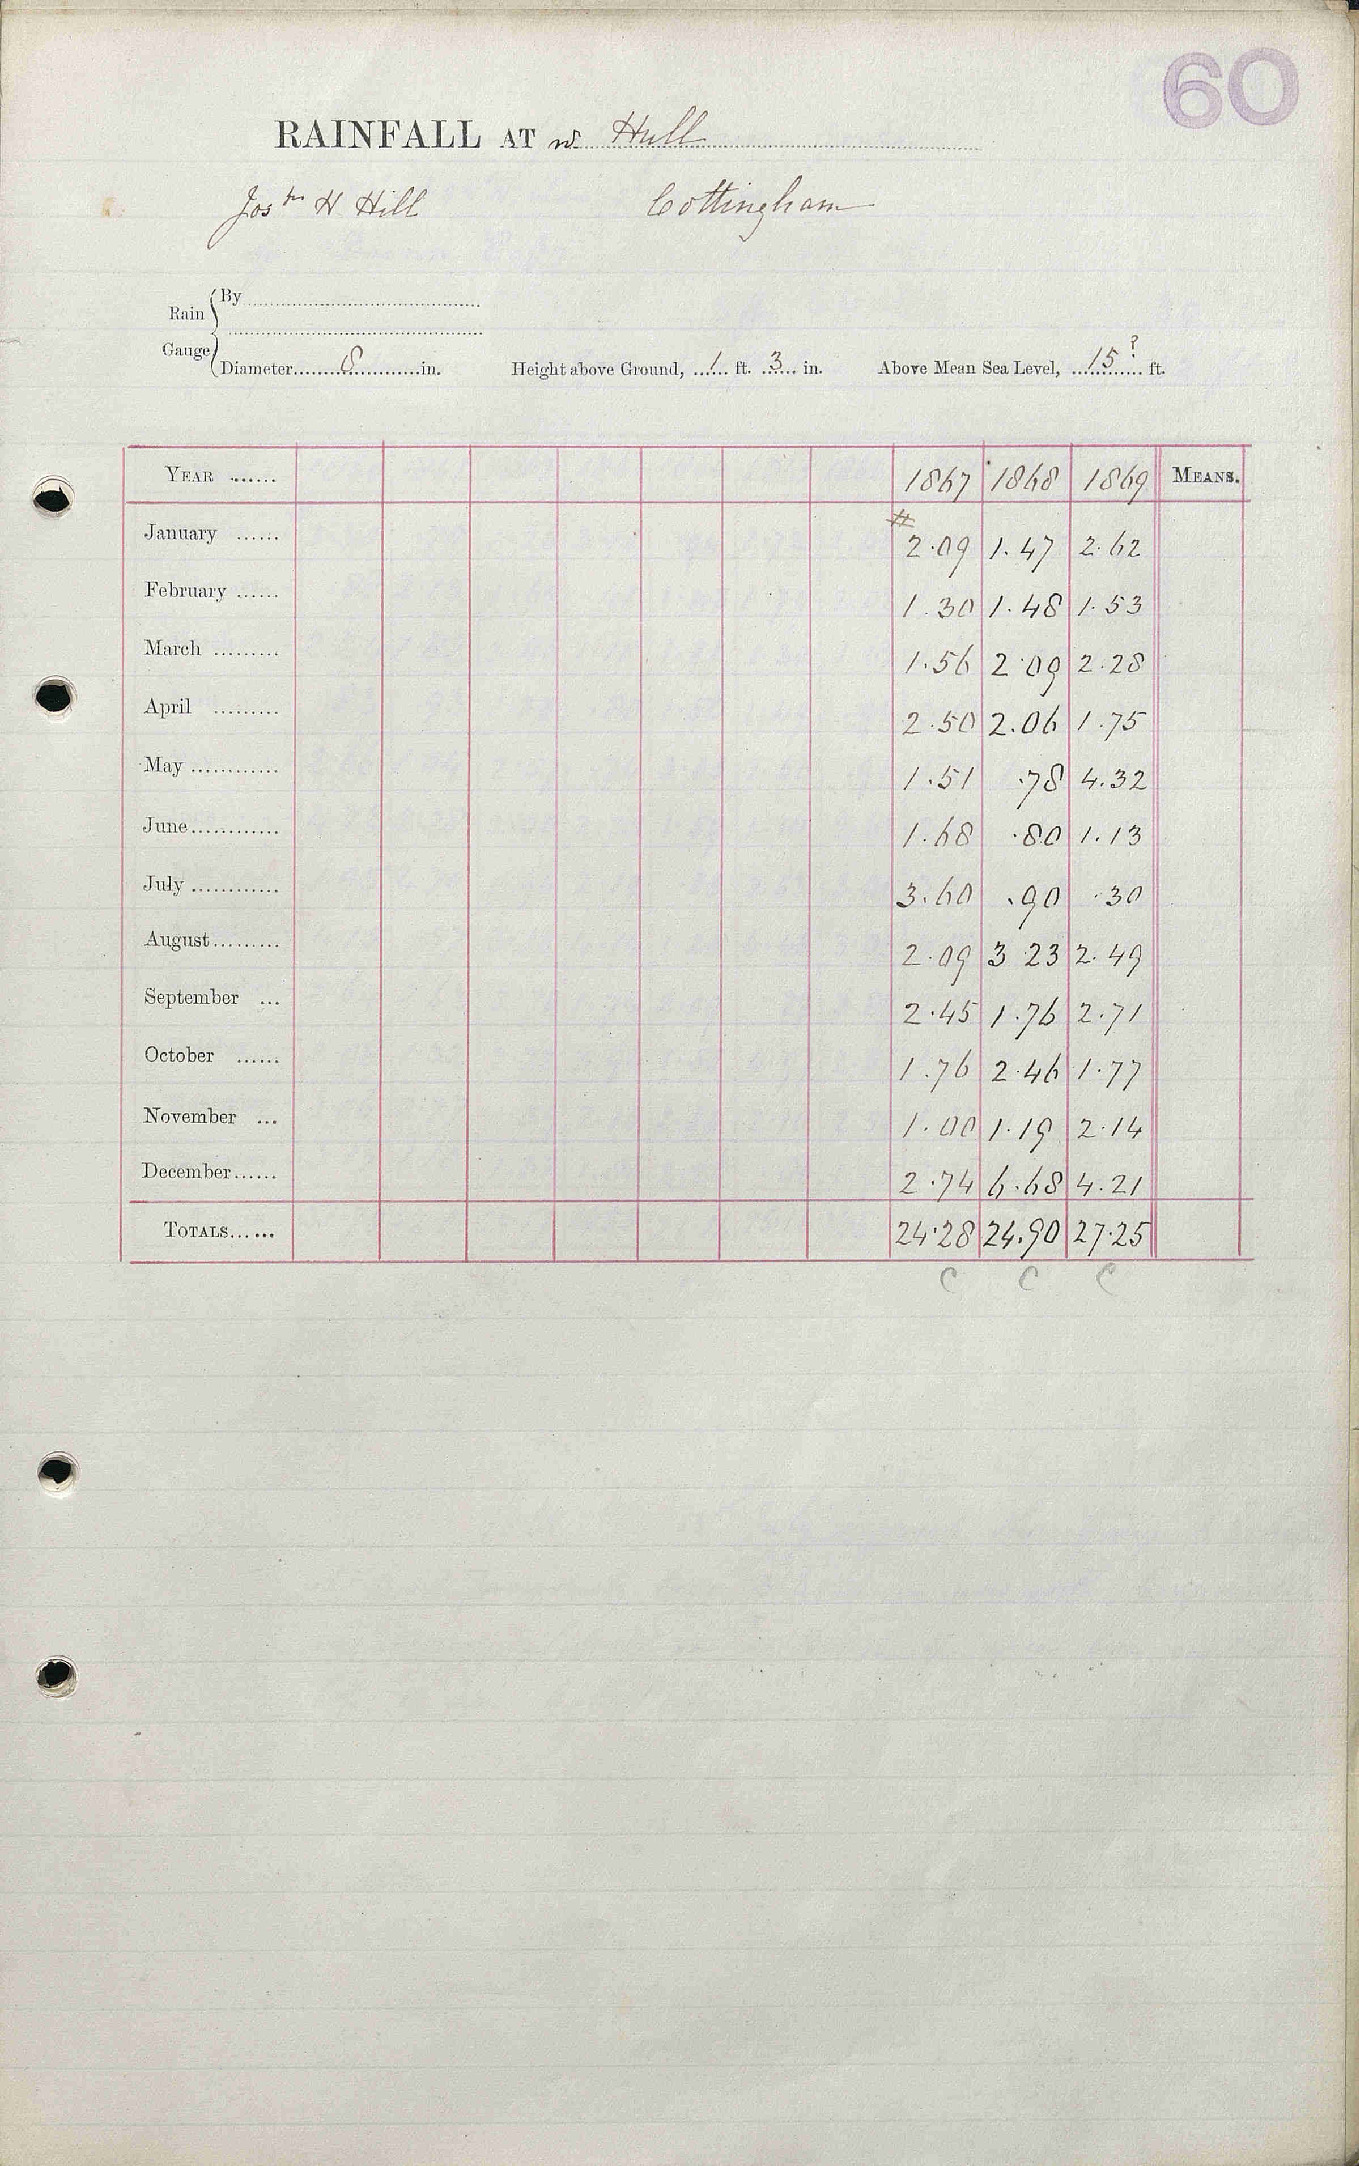 60
RAINFALL AT nr Hull
Josh H Hill Cottingham
Rain Gauge
By
Diameter 8 in. Height above Ground, 1 ft. 3 in. Above Mean Sea Level, 15? ft.
YEAR 1867 1868 1869 MEANS.
#
January 2.09 1.47 2.62
February 1.30 1.48 1.53
March 1.56 2.09 2.28
April 2.50 2.06 1.75
May 1.51 .78 4.32
June 1.68 .80 1.13
July 3.60 .90 .30
August 2.09 3 23 2.49
September 2.45 1.76 2.71
October 1.76 2.46 1.77
November 1.00 1.19 2.14
December 2.74 6.68 4.21
TOTALS 24.28 24.90 27.25
C C C